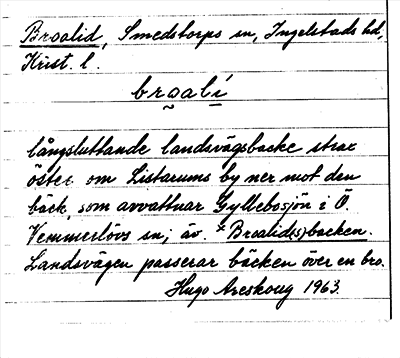 Broalid, Smedstorps sn, Ingelstads hd,
Krist. l.
broalí
långsluttande landsvägsbacke strax
öster om Listarums by ner mot den
bäck, som avvattnar Gyllebosjön i Ö.
Vemmerlövs sn; äv. *Broalid(s)backen.
Landsvägen passerar bäcken över en bro.
Hugo Areskoug 1963.